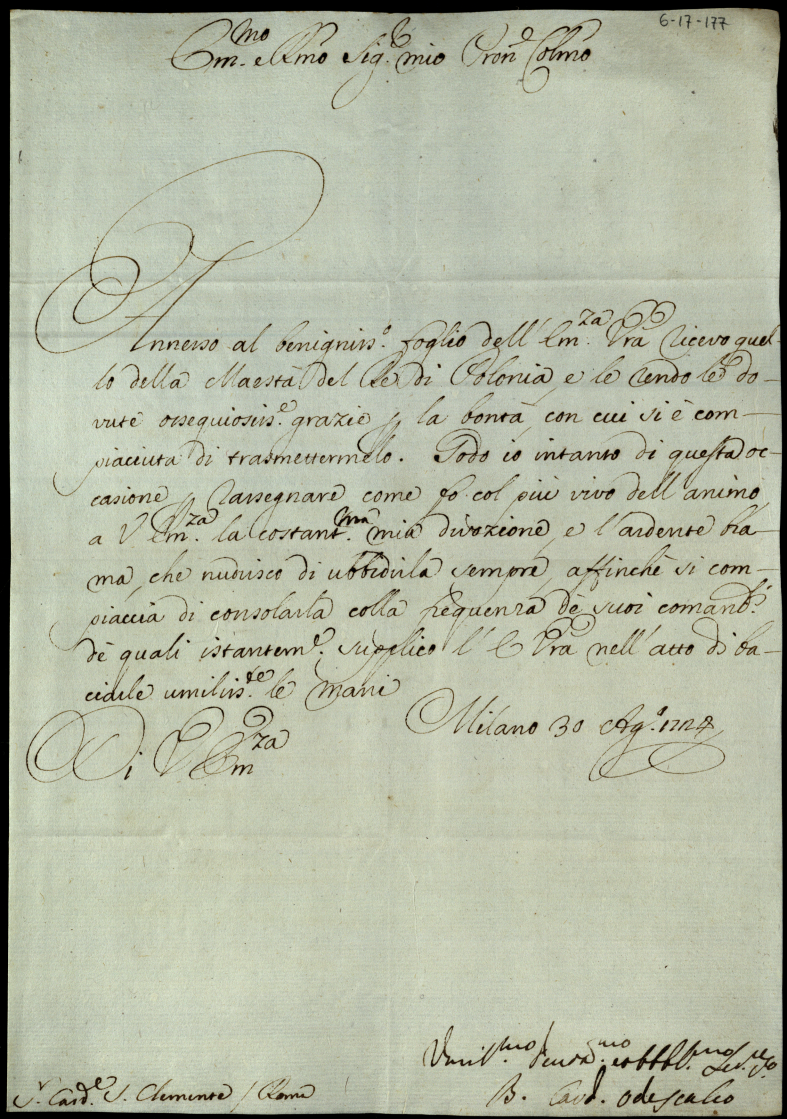 6-17-177
Em.mo e Rmo Sig.r mio Pron.e Colmo
Annesso al benigniss.o foglio dell' Em.za Vra ricevo quel-
lo della Maestà del Re di Polonia, e le rendo le do-
vute ossequiosiss.e grazie p la bontà, con cui si è com-
piaciuta di trasmettermelo. Godo io intanto di questa oc-
casione p rassegnare come fo col più vivo dell' animo
a V Em.za la costant.ma mia divozione, e l'ardente bra-
ma, che nudrisco di ubbidirla sempre, affinchè si com-
piaccia di consolarla colla frequenza de suoi comand.i
de quali istantem.e supplico l' E Vra nell' atto di ba-
ciarle umiliss.te le mani
Di V Em.za Milano 30 Ag.o 1724
Umil.mo Devot.mo obbl.mo Ser.re
B. Card. Odescalco
S.r Card.e S. Clemente / Roma